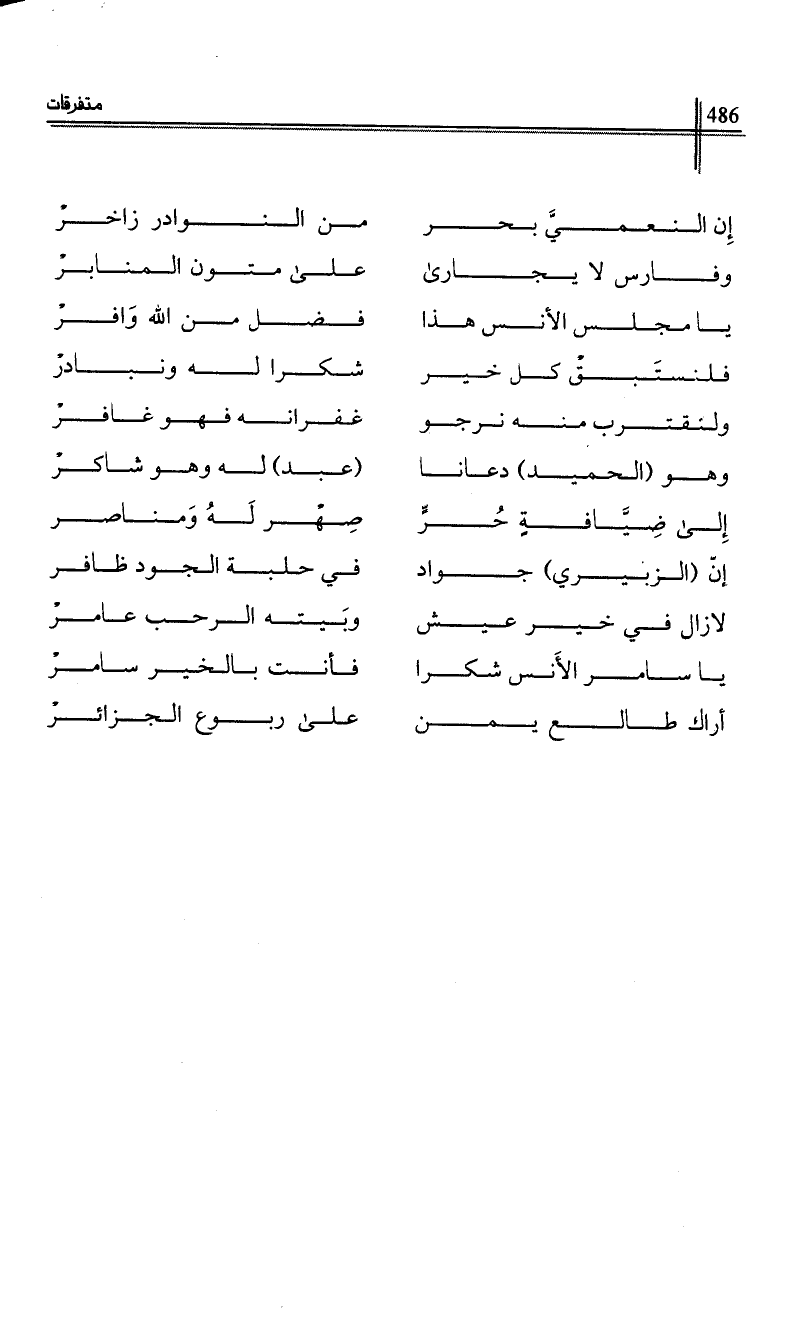 486 متفرقات
إن النعميَّ بحر من النوادر زاخرْ
وفارس لا يجارىٰ علىٰ متون المنابرْ
يا مجلس الأنس هذا فضل من الله وَافرْ
فلنستَبقْ كل خير شكرا له ونبادرْ
ولنقترب منه نرجو غفرانه فهو غافرْ
وهو (الحميد) دعانا (عبد) له وهو شاكرْ
إلىٰ ضِيَّافةٍ حُرٍّ صِهْر لَهُ وَمناصر
إنّ (الزبيري) جواد في حلبة الجود ظافر
لازال في خير عيش وبَيته الرحب عامرْ
يا سامر الأَنس شكرا فأنت بالخير سامرْ
أراك طالع يمن علىٰ ربوع الجزائرْ